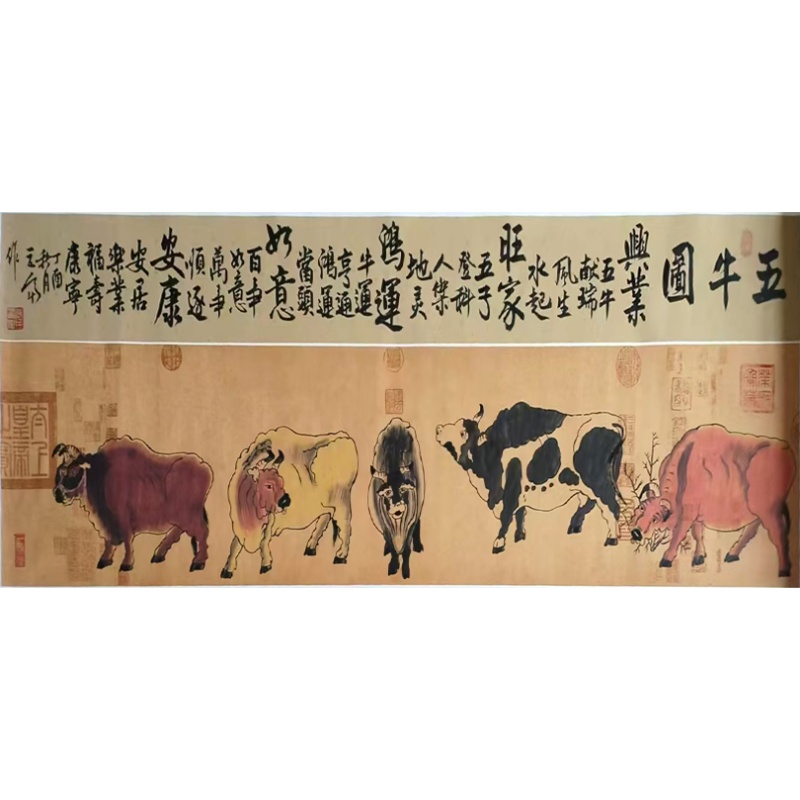 五
牛
圖
興業
五牛
献瑞
風生
水起
旺家
五子
登科
人樂
地灵
鴻運
牛運
亨通
鴻運
當頭
如意
百事
如意
萬事
順遂
安康
安居
樂業
福壽
康寧
丁酉
秋月
作
太上
皇帝